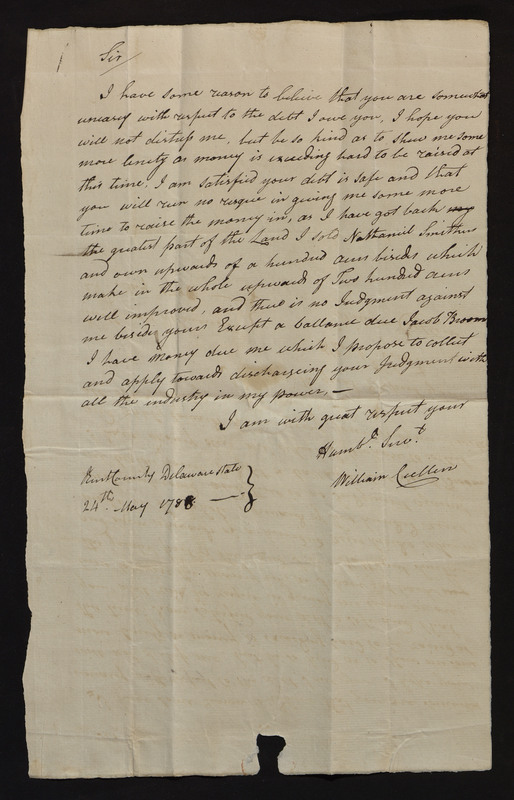 Sir
I have some reason to believe that you are somewhat
uneasy with respect to the debt I owe you, I hope you
will not distress me, but be so kind as to shew me some
more lenity as money is exceeding hard to be raised at
this time. I am satisfied your debt is safe and that
you will run no resque in giving me some more
time to raise the money in, as I have got back my
the greatest part of the Land I sold Nathaniel Smithers
and own upwards of a hundred acres besides which
make in the whole upwards of Two hundred acres
well improved, and there is no Judgment against
me beside yours Except a ballance due Jacob Broom
I have money due me which I propose to collect
and apply towards discharging your Judgment with
all the industry in my power, —
I am with great respect your
Humb.e Serv.t
William Cullen
Kent County Delaware State
24th May 1788 —